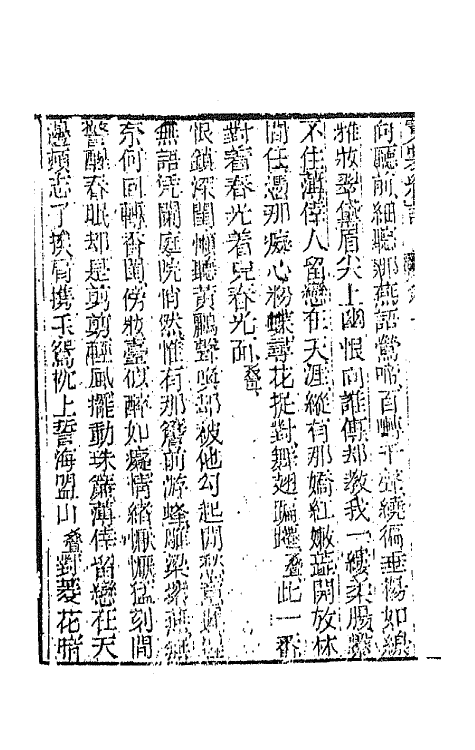 向廳前細聽那燕語鶯啼百囀千聲繞徧垂楊如線
雅妝翠黛眉尖上幽恨向誰傳却教我一縷柔腸
不住薄倖人留戀在天涯縱有那嬌紅嫩蕊開放林
間任憑那癡心粉蝶尋花捉對舞翅蹁躚叠此一番
對着春光着見春光面叠
恨鎖深閨懶聽黃鸝聲喚却被他勾起閒愁
無語凭闌庭院悄然惟有那簷前游蜂雕梁
奈何回轉香閨傍妝臺似醉如癡情緒懨懨猛刻間
驚醒春眠却是剪剪輕風擺動珠簾薄倖留戀在天
邊頻忘了挨肩携玉鴛枕上誓海盟山叠對菱花暗